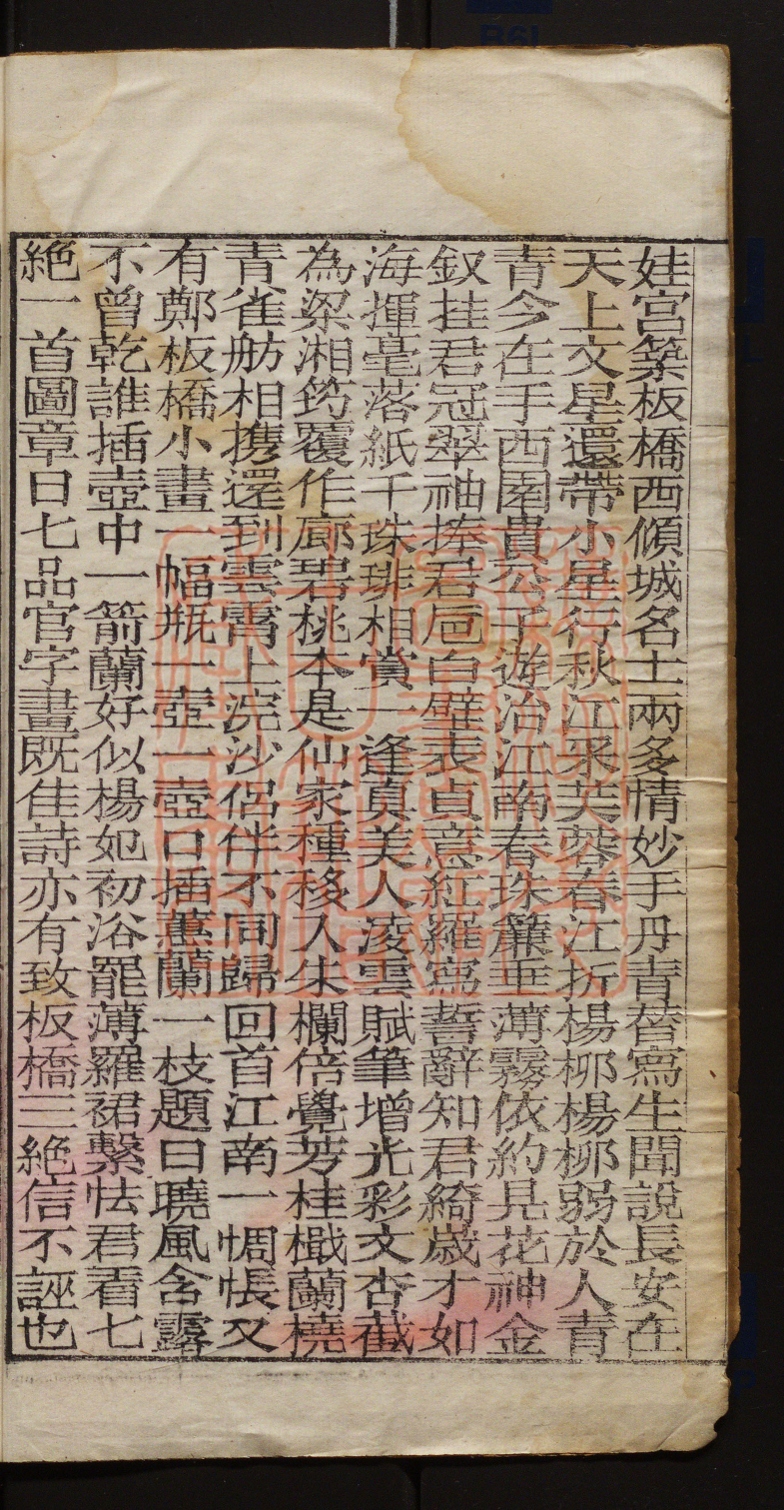 娃宮築板橋西傾城名士兩多情妙手丹青替寫生聞說長安在
天上文星還帶小星行秋江采芙蓉春江折楊柳楊柳弱於人青
青今在手西園貴公子遊冶江南春珠簾垂薄霧依約見花神金
釵挂君冠翠袖捧君卮白璧表貞意紅羅寫誓辭知君綺歲才如
海揮毫落紙千珠琲相賞一逢真美人淩雲賦筆增光彩文杏截
為梁湘筠覆作廊碧桃本是仙家種移入朱欄倍覺芳桂檝蘭橈
青雀舫相攜還到雲霄上浣沙侶伴不同歸回首江南一惆悵又
有鄭板橋小畫一幅瓶一壺一壺口插蕙蘭一枝題曰曉風含露
不曾乾誰插壺中一箭蘭好似楊妃初浴罷薄羅裙繫怯君看七
絕一首圖章曰七品官字畫既佳詩亦有致板橋三絕信不誣也